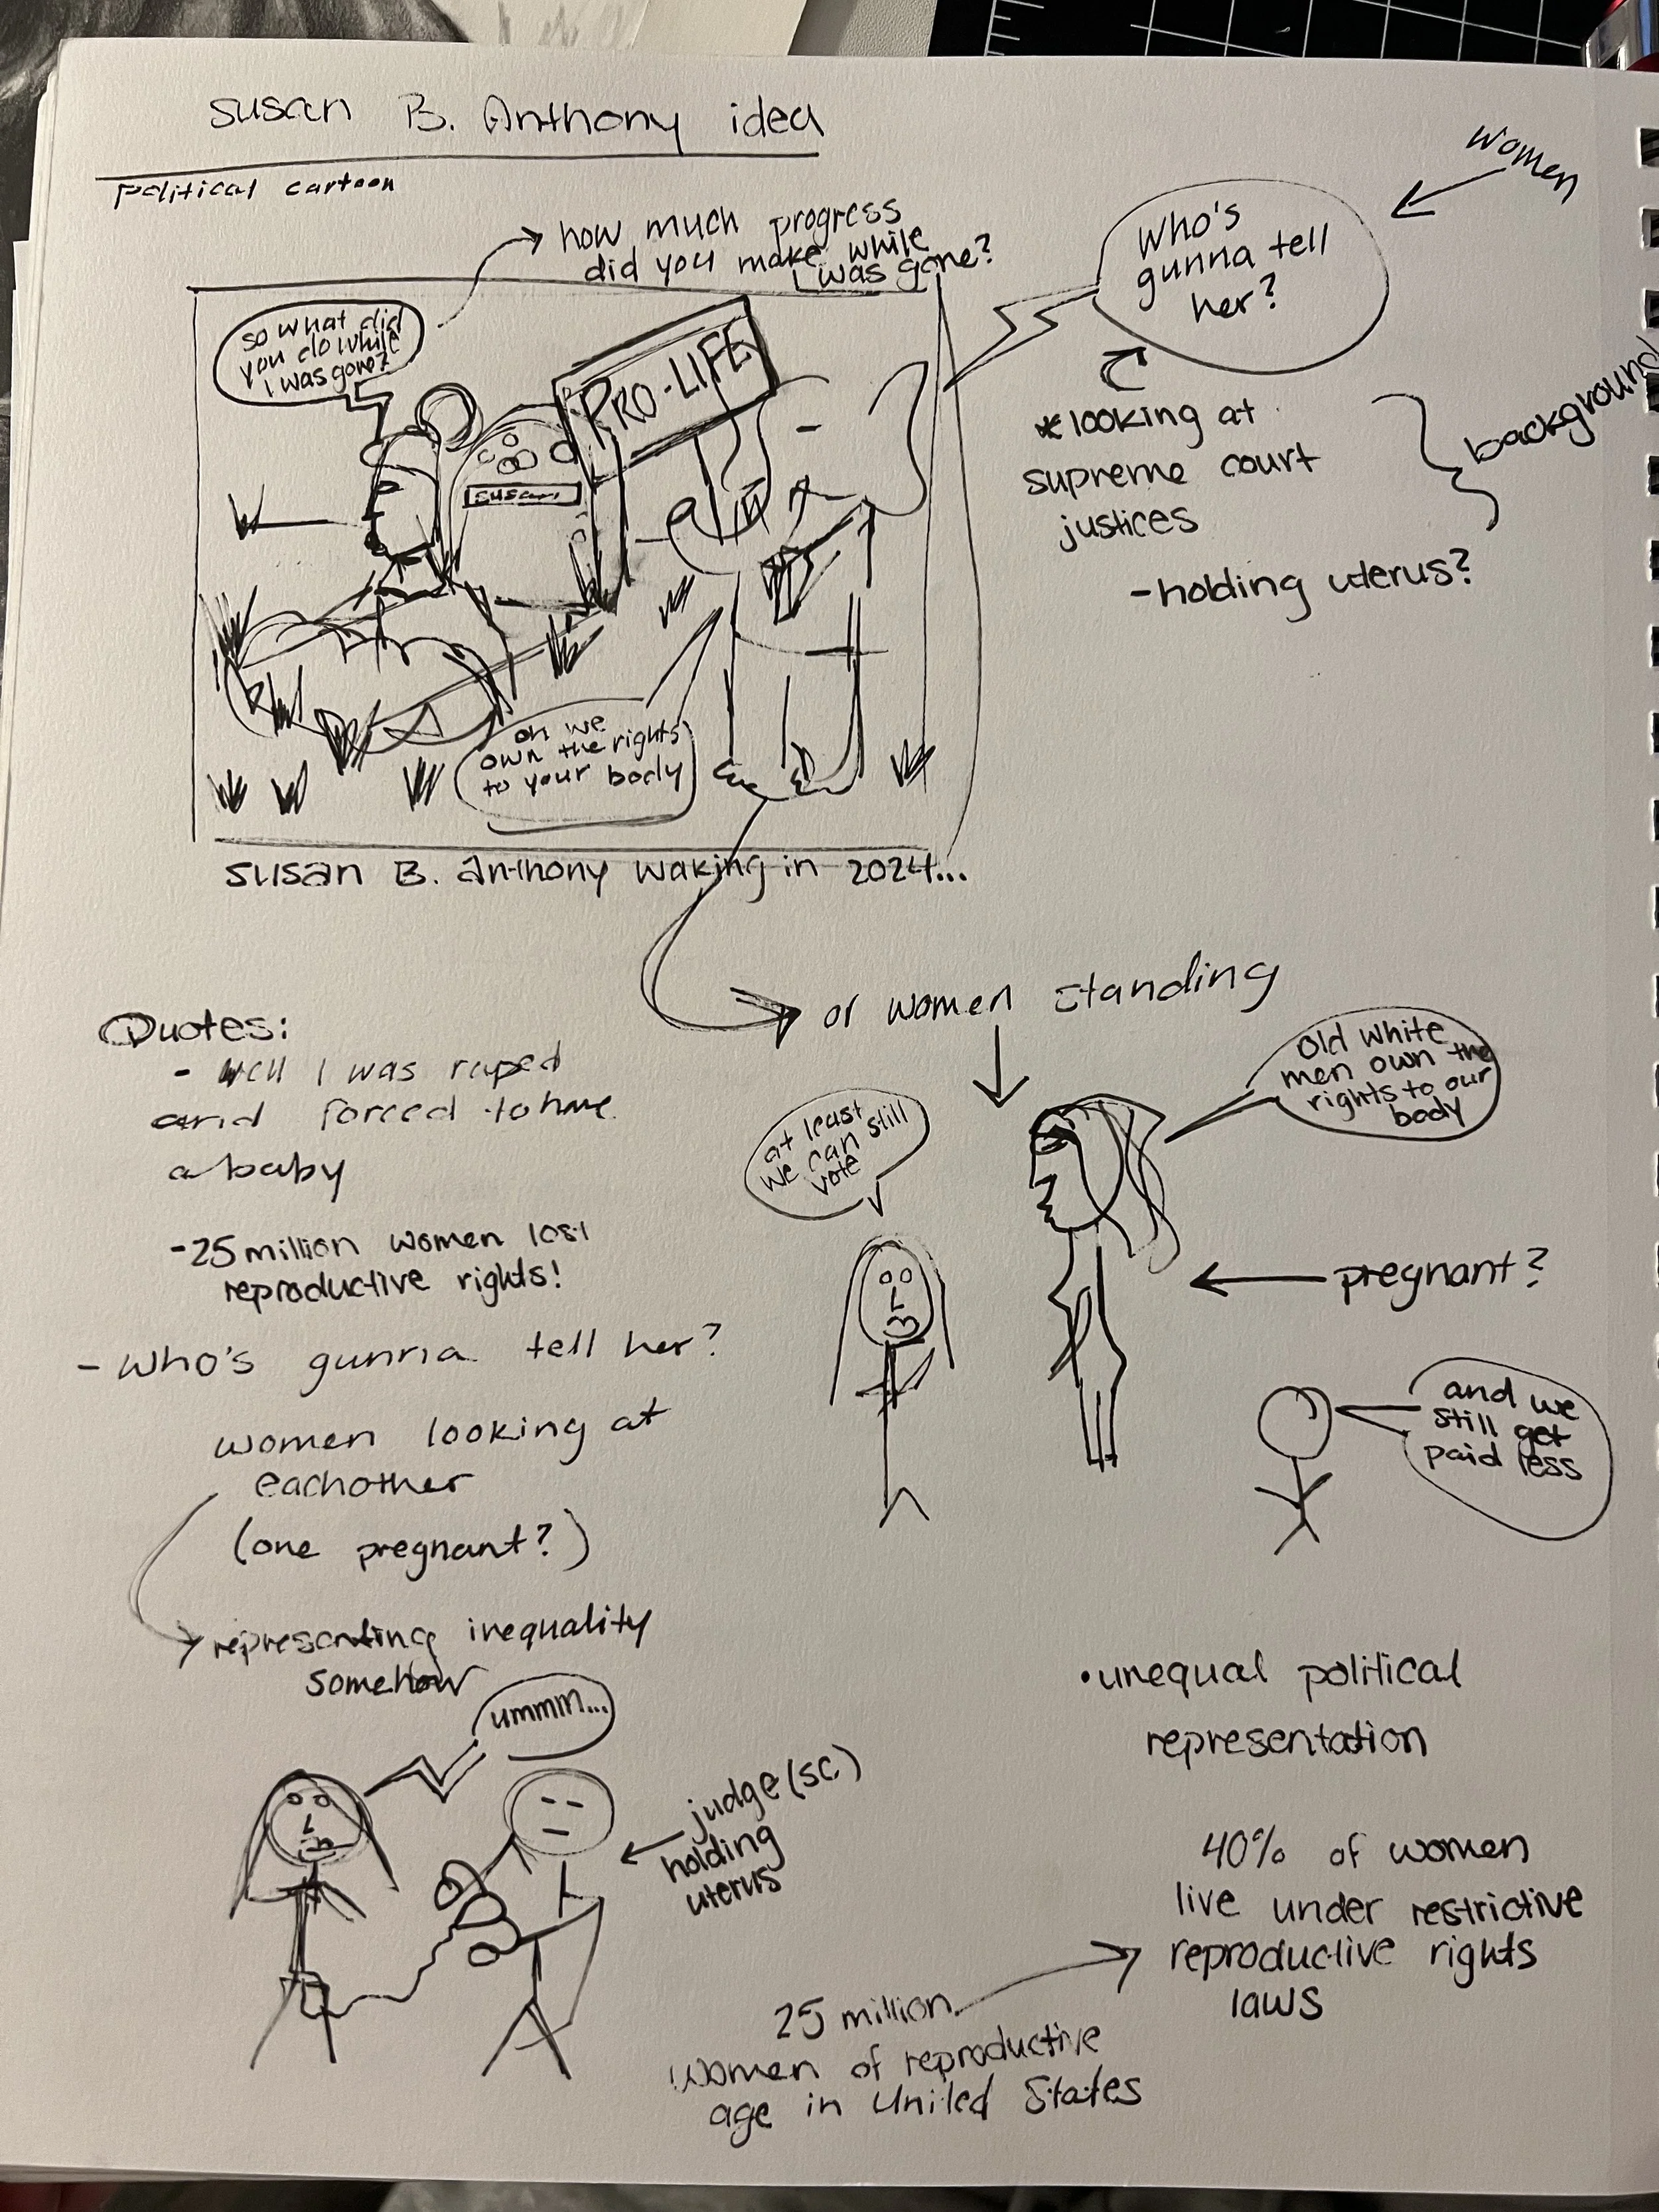 Susan B. Anthony idea
Political cartoon
how much progress
did you make while
I was gone?
women
Who's
gunna tell
her?
so what did
you do while
I was gone?
PRO-LIFE
susan
*looking at
supreme court
justices
background
-holding uterus?
oh we
own the rights
to your body
Susan B. Anthony waking in 2024...
or women standing
Quotes:
- Well I was raped
and forced to have
a baby
-25 million women lost
reproductive rights!
- Who's gunna tell her?
women looking at
eachother
(one pregnant?)
representing inequality
somehow
at least
we can still
vote
Old white
men own the
rights to our
body
pregnant?
and we
still get
paid less
ummm...
judge (SC)
holding
uterus
•unequal political
representation
40% of women
live under restrictive
reproductive rights
laws
25 million
women of reproductive
age in United States